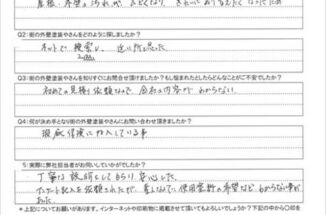 屋根・外壁の汚れが、ひどくなり、きれいにおりるえたくなったため
Q2:街の外壁塗装やさんをどのように探しましたか?
ネットで検索し、近い所だった
Q3:街の外壁塗装やさんを知りすぐにお問合せ頂けましたか?もし悩まれたとしたらどんなことがご不安でしたか?
初めての見積り依頼なので、会社の内容がわからない。
Q4:何が決め手となり街の外壁塗装やさんにお問い合わせ頂きましたか?
瑕疵保険に加入している事
5:実際に弊社担当者がお伺いしていかがでしたか?
丁寧な説明してもらい安心した。
アンケート記入を依頼されたが、
使用塗料の希望など わからない事が
↑上記についてお願いがあります。インターネットや印刷物に掲載させて頂いてもよろしいでしょうか?下記の中から○印を